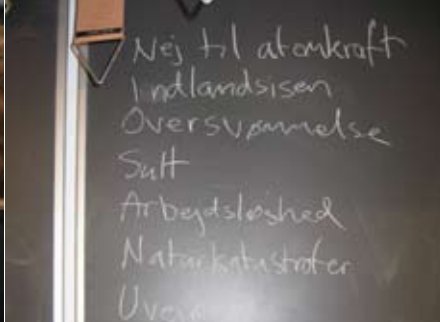 Nej til atomkraft
Indlandsisen
Oversvømmelse
Sult
Arbejdsløshed
Naturkatastrofer